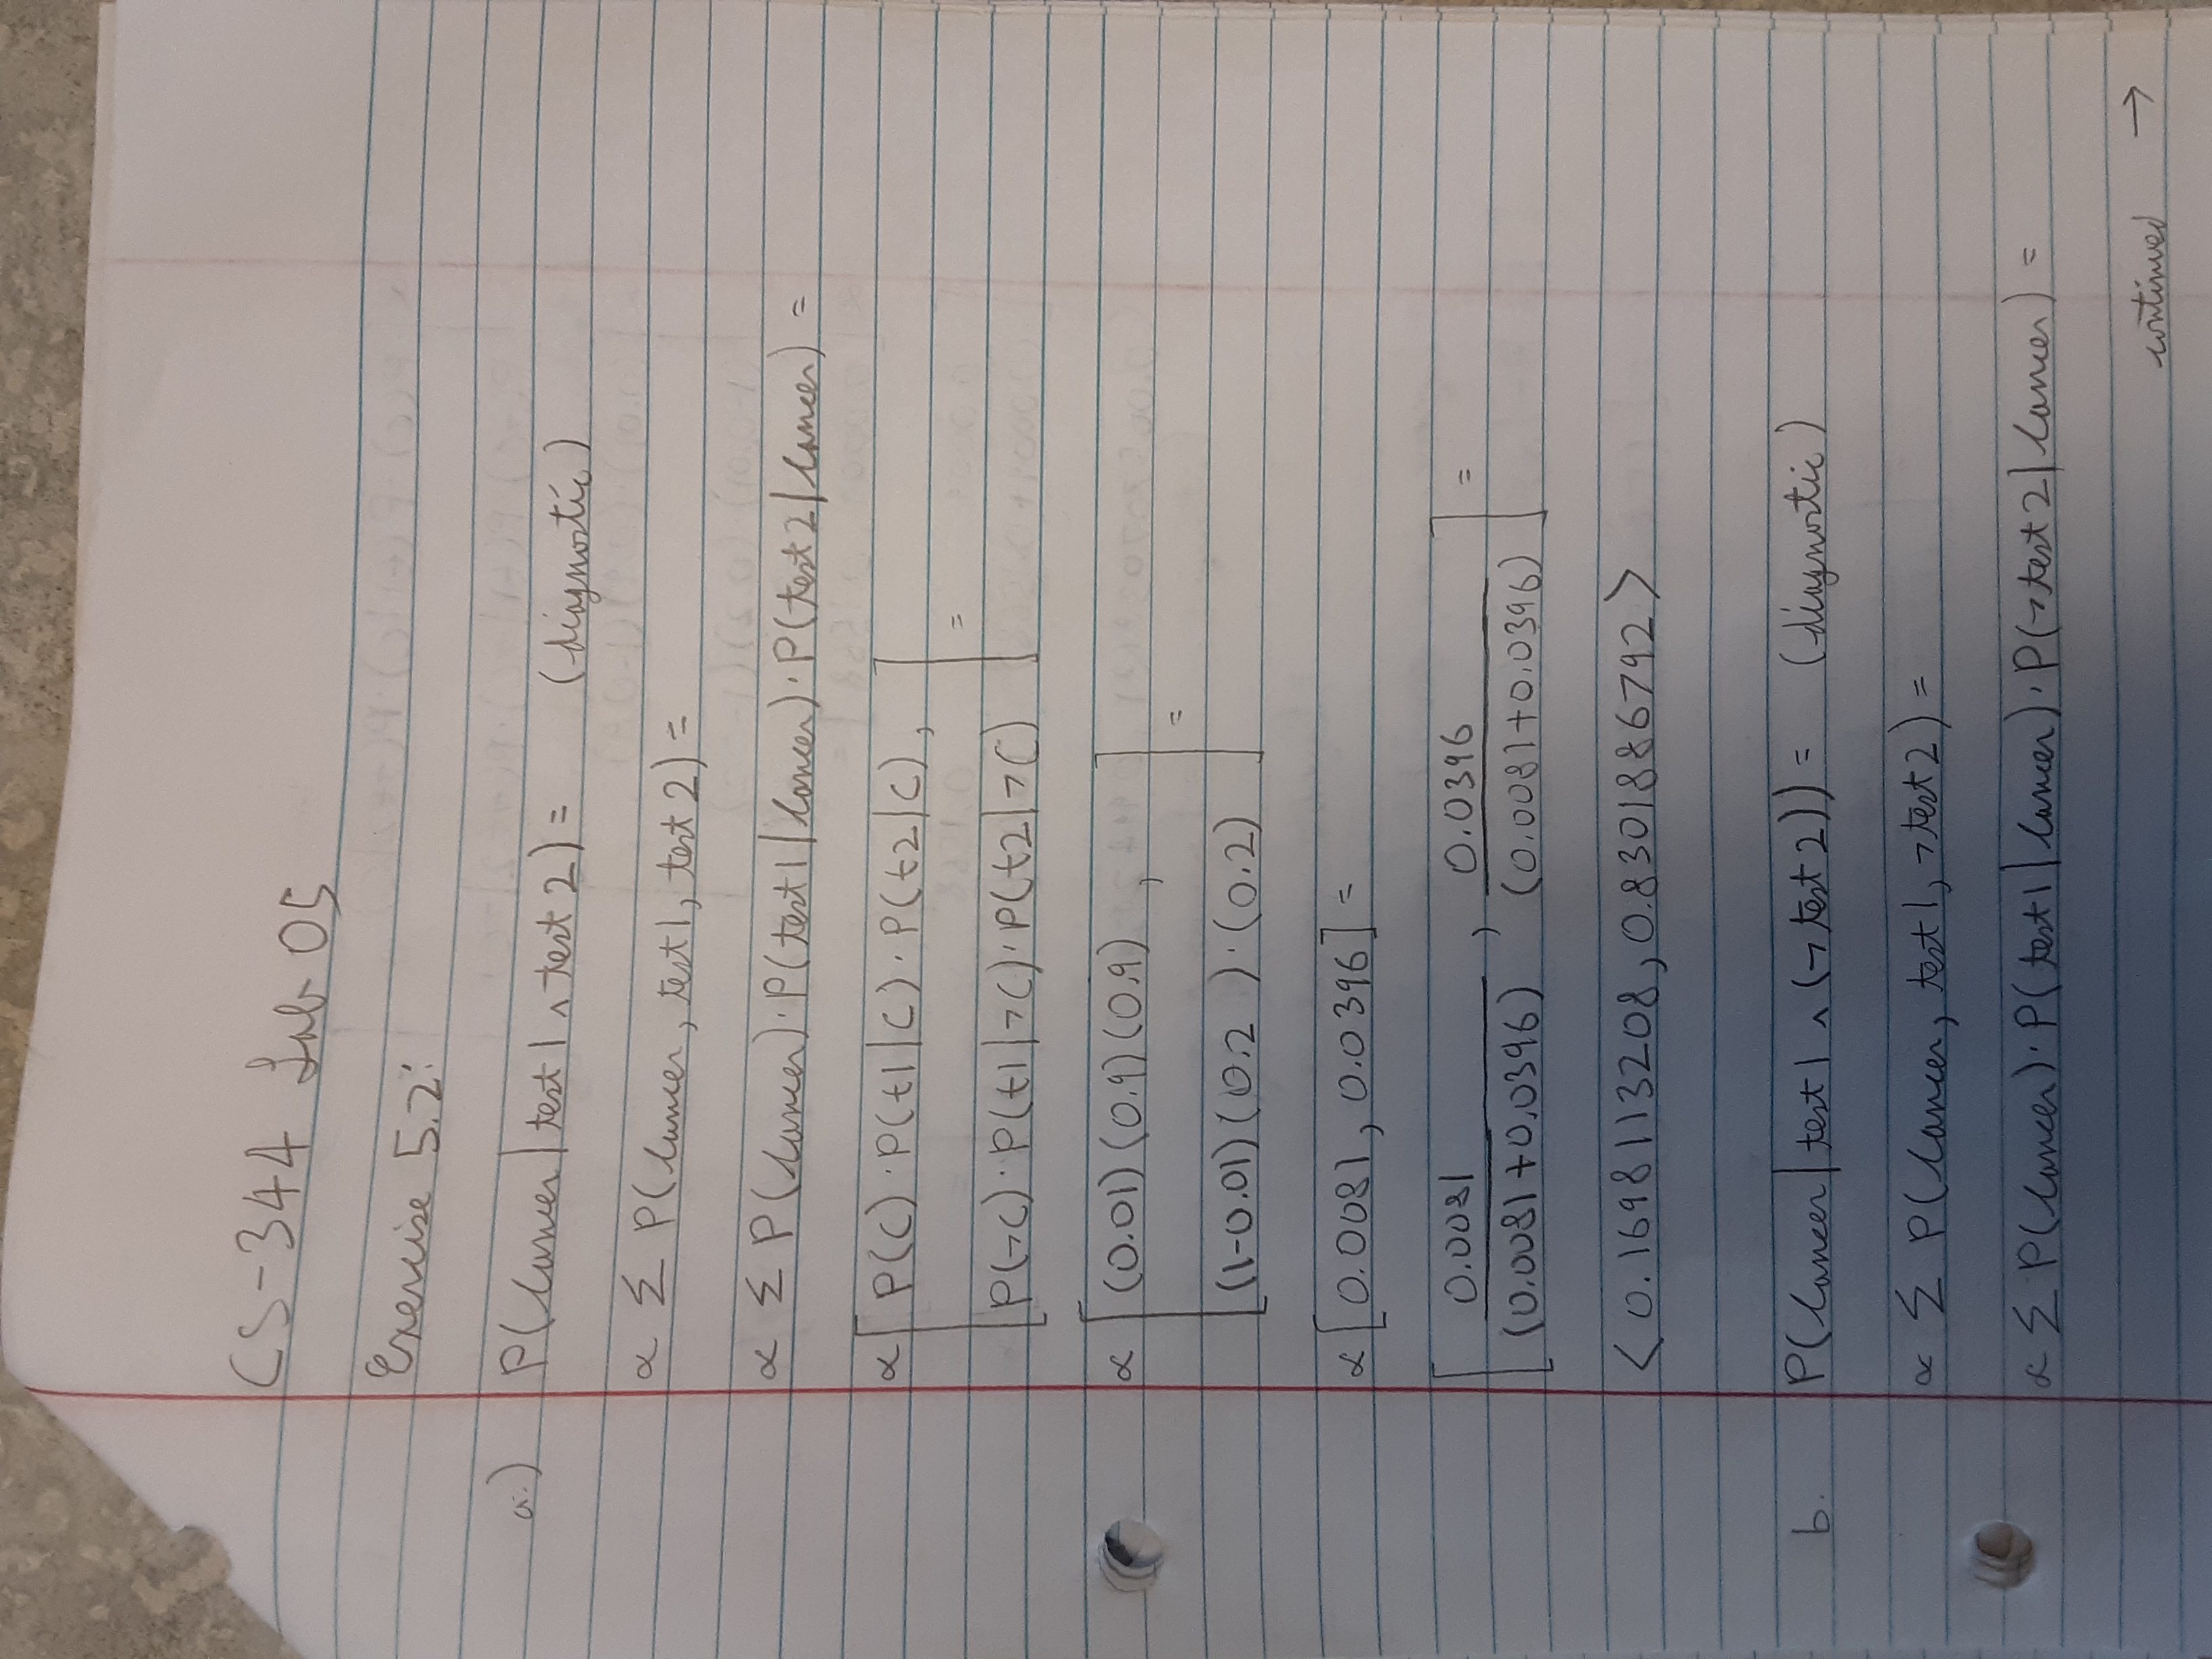 CS-344 Lab 05
Exercise 5.2:
a.) P(Cancer | test1 ∧ test 2) = (diagnostic)
∝ Σ P(Cancer, test1, test 2) =
∝ Σ P(Cancer) · P(test1 | Cancer) · P(test 2 | Cancer) =
∝ [ P(C) · P(t1 | C) · P(t2 | C),
=
P(¬C) · P(t1 | ¬C) · P(t2 | ¬C) ]
∝ [ (0.01) (0.9) (0.9) ,
=
(1-0.01) (0.2 ) · (0.2) ]
∝ [0.0081, 0.0396] =
[ 0.0081 , 0.0396 ] =
(0.0081+0.0396) (0.0081+0.0396)
< 0.1698113208, 0.8301886792 >
b. P(Cancer | test1 ∧ (¬ test 2)) = (diagnostic)
∝ Σ P(Cancer, test1, ¬test2) =
∝ Σ P(Cancer) · P(test1 | Cancer) · P(¬test2 | Cancer) =
continued →